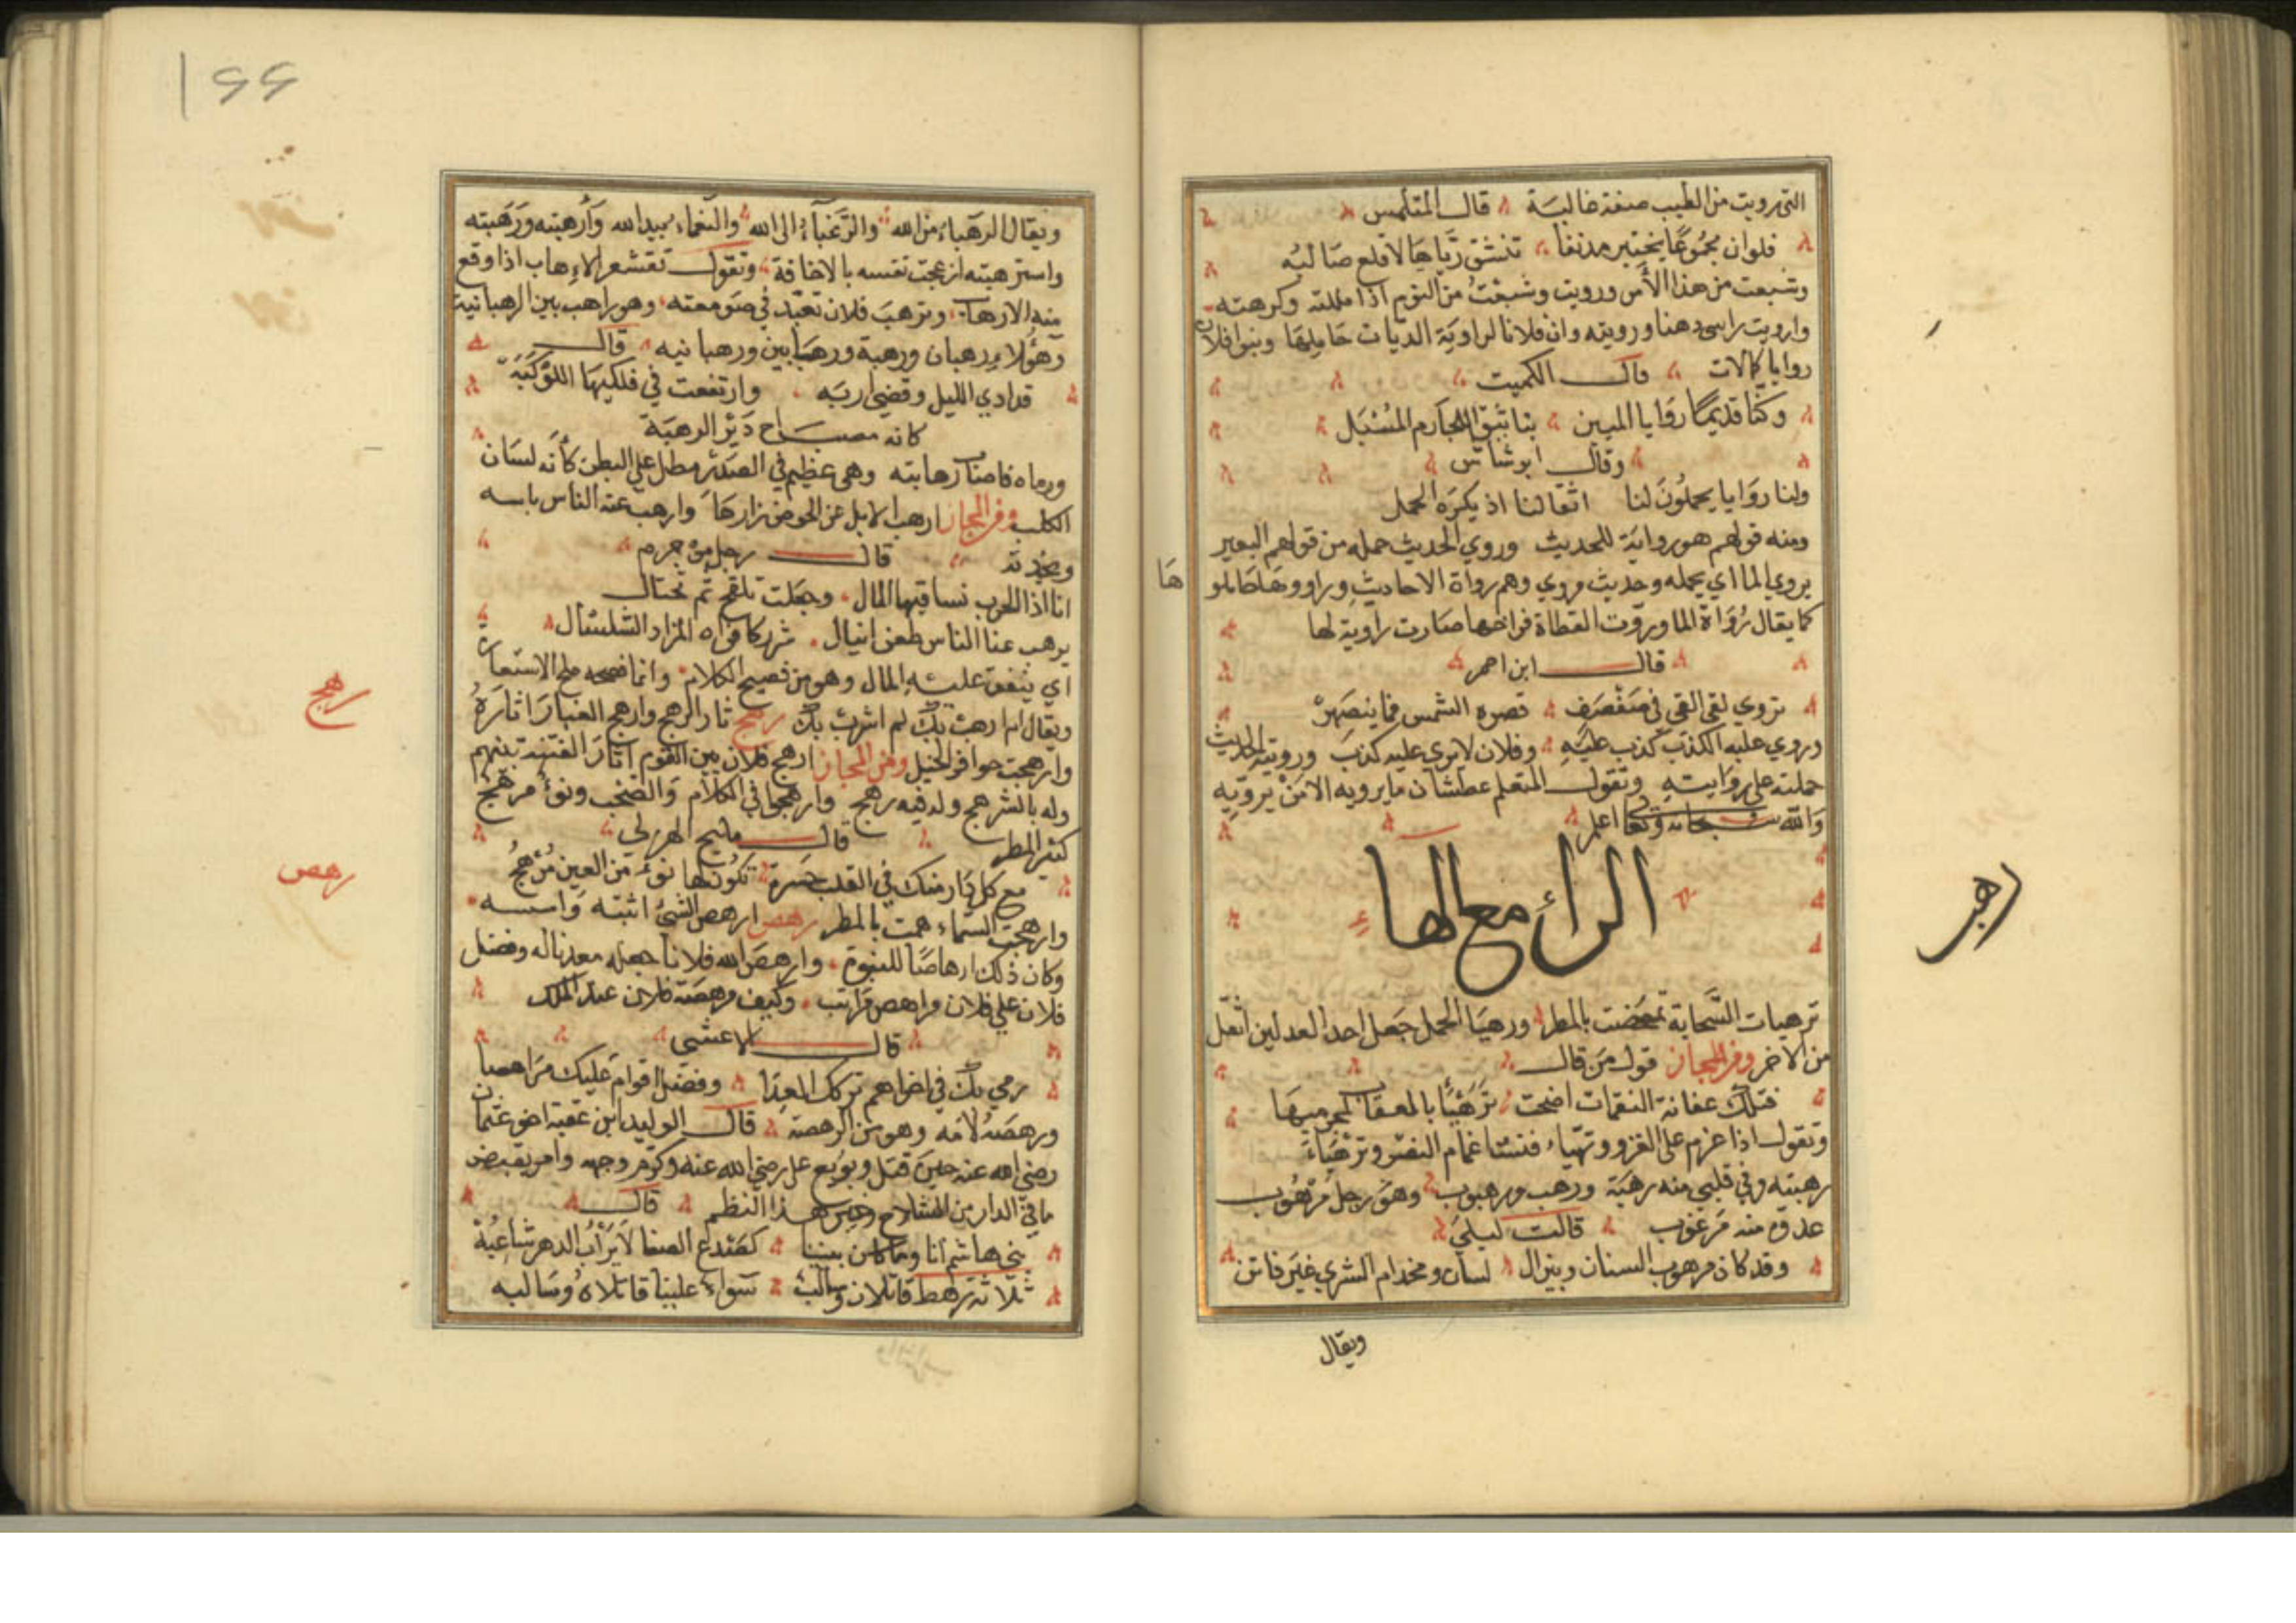 التي رويت من الطيب صفة غالبة قال المتلمس
فلوان مجموعا بخيبر مدنفا تنشق رياها لاقلع صالبه
وشبعت من هذا الأمر ورويت وشبعت من النوم اذا مللته وكرهته
وارويت راسي دهنا ورويته وان فلانا لراوية الديات حاملها وبنوا فلان
روايا كالات قال الكميت
وكنا قديما روايا المبين بنا يثق الجارم المسبل
وقال ابو شاس
ولنا روايا يحملون لنا اثقالنا اذ يكره الحمل
ومنه قولهم هو رواية للحديث وروي الحديث حمله من قولهم البعير
يروي الما اي يحمله وحديث مروي وهم رواة الاحاديث وراووها حاملو
ها
كما يقال رواة الما وروت القطاة فراخها صارت راوية لها
قال ابن احمر
تروي لقى القي في صفصف تصره الشمس فما ينصهر
وروي عليه الكذب كذب عليه وفلان لا يروى عليه كذب ورويته الحديث
حملته على روايته وتقول المتعلم عطشان ما يرويه الا من يرويه
والله سبحانه وتعا اعلم
الراء مع الها
ترهيات السحابة تمخضت بالمطر ورهيا الحمل جعل احد العدلين اثقل
من الاخر ومن المجاز قول من قال
فتلك عفانة النقمات اضحت ترهيأ بالعقاب لمجرميها
وتقول اذا عزم على الغزو وتهياء فنشئا غمام النصر وترهياء
رهب
رهبته وفي قلبي منه رهبة ورهب ورهبوب وهو رجل مرهوب
عدوه منه مرعوب قالت ليلى
وقد كان مرهوب السنان وبين ال لسان ومخدام السري غير فاتن
ويقال
١٤٤
ويقال الرهباء من الله والرغباء الى الله والنعماء بيد الله وأرهبته ورهبته
واسترهبته ازعجت نفسه بالاخافة وتقول تقشعر الاهاب اذا وقع
منه الارهاب وترهب فلان تعبد في صومعته وهو راهب بين الرهبانية
وهؤلاء رهبان ورهبة ورهبابين ورهبانيه قال
قد ادي الليل وقضي اربه وارتفعت في فلكيها الكوكبه
كانه مصباح دير الرهبة
ورماه فاصاب رهابته وهي عظيم في الصدر مطل على البطن كأنه لسان
الكلب ومن المجاز ارهب الابل عن الحوض زارها وارهب عنه الناس باسه
ونجدته قال رجل من جرم
انا اذا الحرب نساقيها المال وجعلت تلقح ثم تحتال
يرهب عنا الناس طعن ايبال شزر كافواه المزاد الشلشال
اي ينفق عليه المال وهو من فصيح الكلام وانما فصحه ملح الاستعارة
ويقال لم ارهب بك لم استرب بك رهج ثار الرهج وارهج الغبار اثاره
رهج
وارهجت حوافر الخيل ومن المجاز ارهج فلان بين القوم اثار الفتنة بينهم
وله بالشر هج وله فيه رهج وارهجوا في الكلام والصخب ونوء مرهج
كثير المطر قال مليح الهذلي
ففي كل دار منك في القلب حسرة تكون لها نوء من العين مرهج
رهص
وارهجت السماء همت بالمطر رهص ارهص الشئ اثبته واسسه
وكان ذلك ارهاصا للنبوة وارهص الله فلانا جعله معدنا له وفضل
فلان على فلان مراهص مراتب وكيف مرهصة فلان عند الملك
قال الاعشى
رمي بك في اخراهم تركك العدا وفضل اقوام عليك مراهصا
ورهصه لامه وهو من الرهصة قال الوليد ابن عقبة اخو عثمان
رضي الله عنه حين قتل وبويع علي رضي الله عنه وكرم وجهه وامر بقبض
ما في الدار من السلاح وغيره هذا النظم قال
بني هاشم انا وما كان بيننا كصدع الصفا لا يرأب الدهر شاعبه
ثلاثة رهط قاتلان وسالب سواء علينا قاتلاه وسالبه